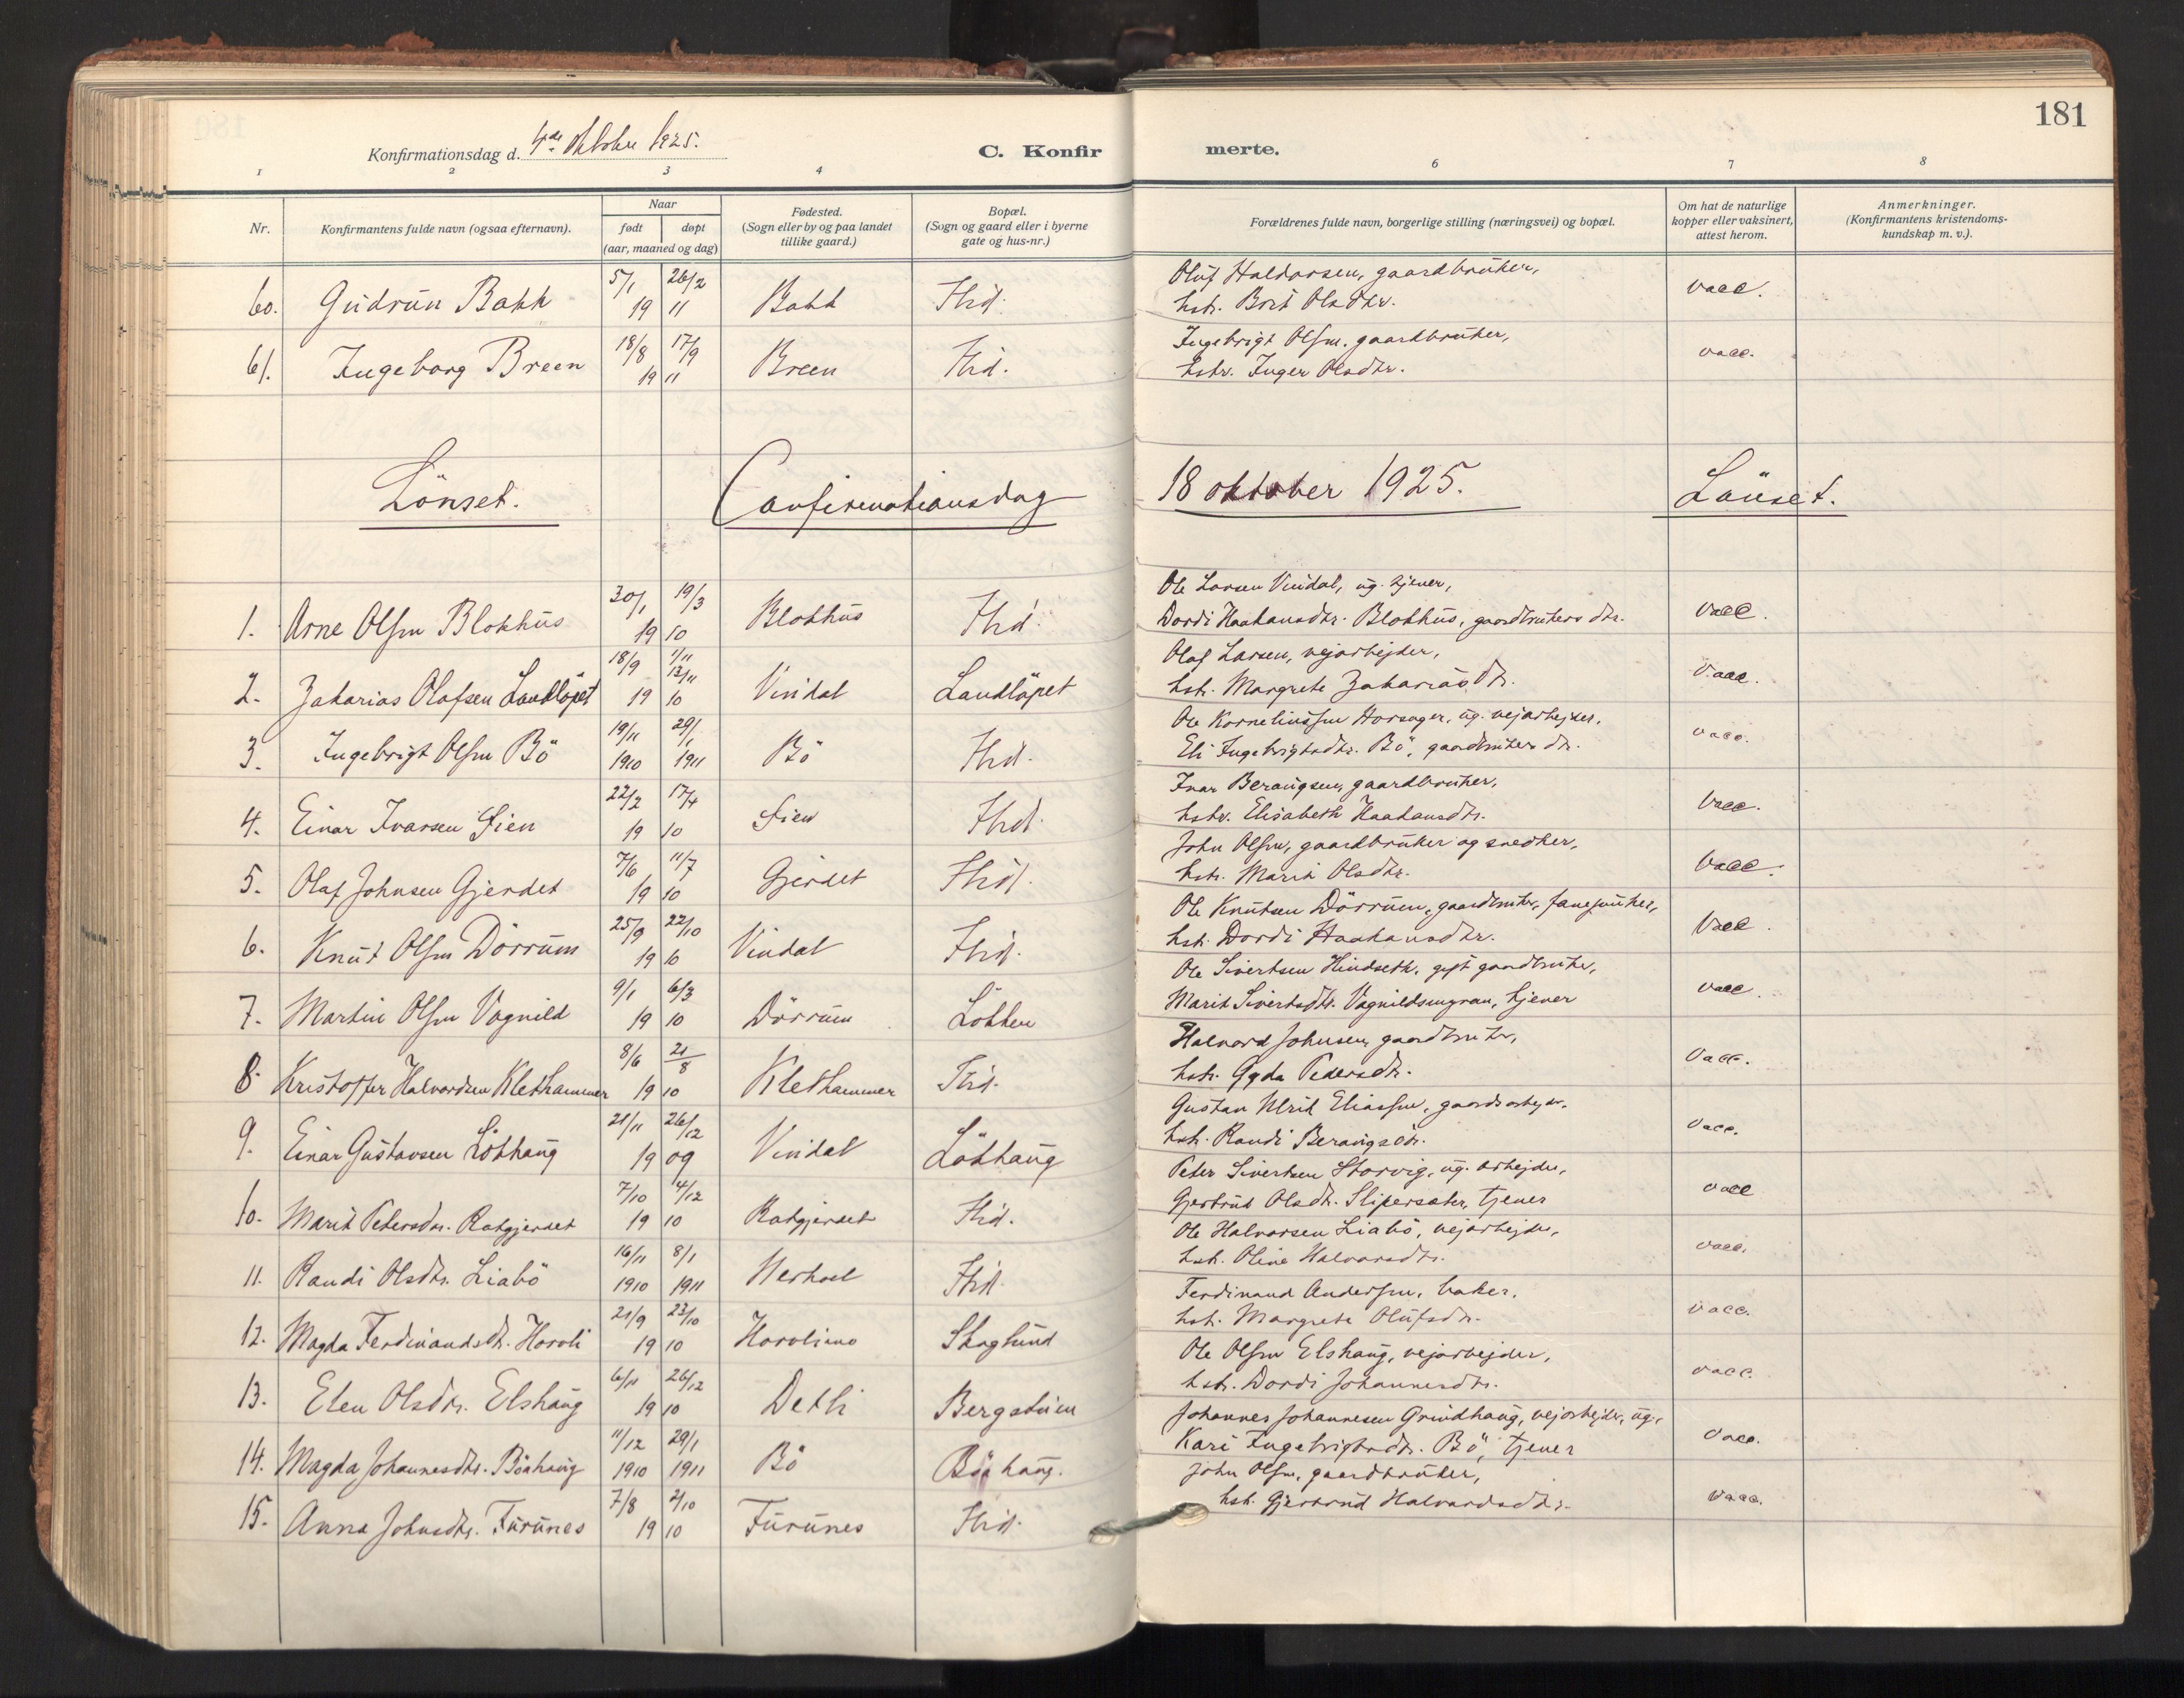 181
Konfirmationsdag d. 4de oktober 1925.
C. Konfirmerte.
1 2 3 4 6 7 8
Nr. Konfirmantens fulde navn (ogsaa efternavn). Naar født døpt (aar, maaned og dag) Fødested. (Sogn eller by og paa landet tillike gaard.) Bopæl. (Sogn og gaard eller i byerne gate og hus-nr.) Forældrenes fulde navn, borgerlige stilling (næringsvei) og bopæl. Om hat de naturlige kopper eller vaksinert, attest herom. Anmerkninger. (Konfirmantens kristendomskundskap m. v.).
60. Gudrun Bakk 5/1 26/2 19 11 Bakk Ibid. Oluf Haldorsen, gaardbruker, vacc.
hstr. Brit Olsdtr.
61. Ingeborg Breen 18/8 17/9 19 11 Breen Ibid. Ingebrigt Olsen, gaardbruker, vacc.
hstr. Inger Olsdtr.
Lönset. Confirmationsdag 18 oktober 1925. Lönset.
1. Arne Olsen Blokhus 30/1 19/3 19 10 Blokhus Ibid. Ole Larsen Vindal, ug. tjener, vacc.
Dordi Haakansdtr. Blokhus, gaardbrukers dtr.
2. Zakarias Olafsen Landlöpet 18/9 1/11 13/11 19 10 Vindal Landlöpet Olaf Larsen, vejarbejder, vacc.
hstr. Margrete Zakariasdtr.
3. Ingebrigt Olsen Bö 19/11 29/1 1910 1911 Bö Ibid. Ole Korneliussen Horsager, ug. vejarbejder, vacc.
Eli Ingebrigtsdtr. Bö, gaardbrukers dtr.
4. Einar Ivarsen Sien 22/2 17/4 19 10 Sien Ibid. Ivar Berangsen, gaardbruker, vacc.
hstr. Elisabeth Haakansdtr.
5. Olaf Johnsen Gjerdet 7/6 11/7 19 10 Gjerdet Ibid. John Olsen, gaardbruker og snedker, vacc.
hstr. Marit Olsdtr.
6. Knut Olsen Dörrum 25/9 22/10 19 10 Vindal Ibid. Ole Knutsen Dörrum, gaardbruker, fanejunker, vacc.
hstr. Dordi Haakansdtr.
7. Martin Olsen Vognild 9/1 6/3 19 10 Dörrum Lökken Ole Sivertsen Hindseth, gift gaardbruker, vacc.
Marit Sivertsdtr. Vognildsmyran, tjener
8. Kristoffer Halvordsen Klethammer 8/6 21/8 19 10 Klethammer Ibid. Halvord Johnsen, gaardbruker, vacc.
hstr. Gyda Pedersdtr.
9. Einar Gustavsen Lökhaug 21/11 26/12 19 09 Vindal Lökhaug Gustav Ulrik Eliassen, gaardsarbejder, vacc.
hstr. Randi Berangsdtr.
10. Marit Petersdtr. Ratgjerdet 7/10 4/12 19 10 Ratgjerdet Ibid. Peter Sivertsen Storvig, ug. arbejder, vacc
Gjertrud Olsdtr. Slipersæter, tjener
11. Randi Olsdtr. Liabö 16/11 8/1 1910 1911 Nerhoel Ibid. Ole Halvorsen Liabö, vejarbejder, vacc.
hstr. Oline Halvorsdtr.
12. Magda Ferdinandsdtr. Horoli 21/9 23/10 19 10 Horolimo Skoglund Ferdinand Andersen, baker, vacc.
hstr. Margrete Olufsdtr.
13. Elen Olsdtr. Elshaug 6/11 26/12 19 10 Detli Bergstuen Ole Olsen Elshaug, vejarbejder, vacc.
hstr. Dordi Johannesdtr.
14. Magda Johannesdtr. Böahaug 11/12 29/1 1910 1911 Bö Böahaug. Johannes Johannesen Grindhaug, vejarbejder, ug. vacc.
Kari Ingebrigtsdtr. Bö, tjener
15. Anna Johnsdtr. Furunes 7/8 2/10 19 10 Furunes Ibid. John Olsen, gaardbruker, vacc.
hstr. Gjertrud Halvordsdtr.